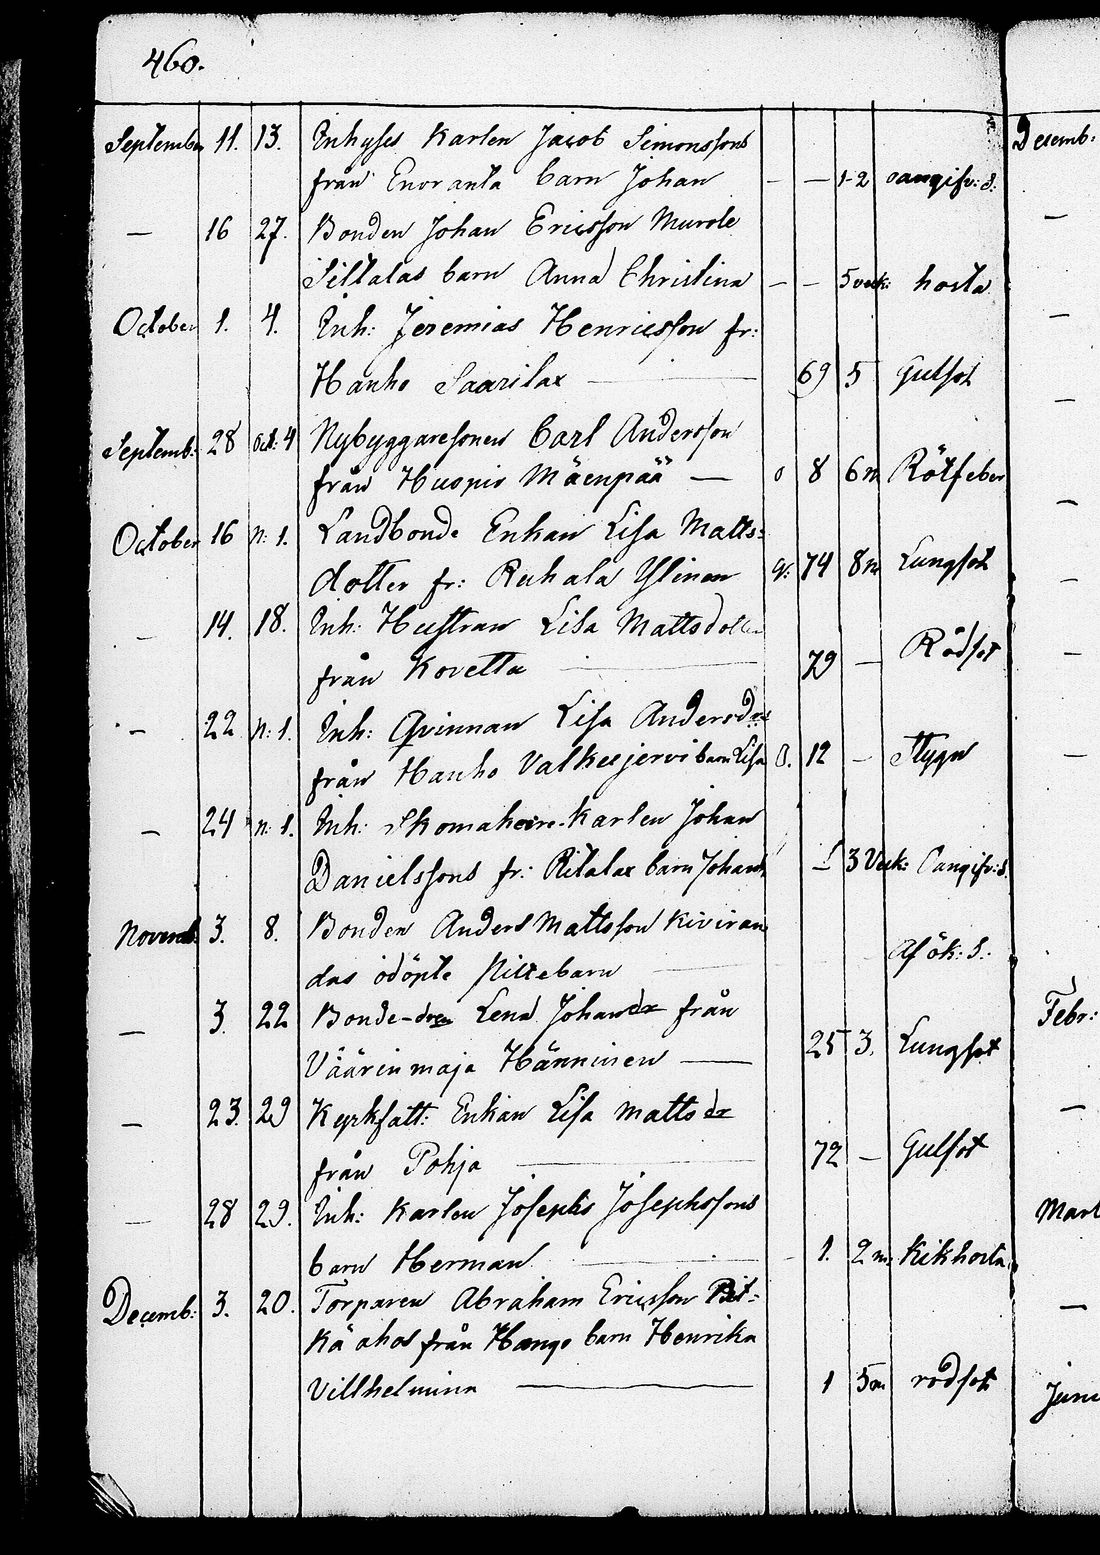 460.
September 11. 13. Inhyses Karlen Jacob Simonssons
från Enoranta barn Johan — — 1-2 oangifv: S.
— 16 27. Bonden Johan Ericsson Murole
Sillalas barn Anna Christina — — 5 veck: hosta
October 1. 4. Inh: Jeremias Henricsson fr:
Hanho Saarilax — 69 5 Gulsot
Septemb: 28 Oct: 4 Nybyggaresonen Carl Andersson
från Huopio Mäenpää — 8 6 m Rötfeber
October 16 n: 1. Landbonde Enkan Lisa Matts=
dotter fr: Ruhala Ylinen 74 8 m Lungsot
— 14. 18. Inh: Hustrun Lisa Mattsdotter
från Kovetta — 79 — Rödsot
— 22 n: 1. Inh: Qvinnan Lisa Andersdr
från Hanho Valkeejervi barn Lisa 12 — Stygn
— 24 n: 1. Inh: Skomakare-Karlen Johan
Danielssons fr: Ritalax barn Johan 3 Veck: Oangifv: S.
Novemb: 3. 8. Bonden Anders Mattsson Kiviran
das odöpte barn — Af ok: S:
— 3. 22 Bonde-dren Lena Johansdr från
Väärinmaja Hänninen — 25 3. Lungsot
— 23. 29 Kyrkfatt: Enkan Lisa Mattsdr
från Pohja — 72 — Gulsot
— 28 29. Inh: Karlen Josephs Josephssons
barn Herman — 1. 2 m: Kikhosta
Decemb: 3. 20. Torparen Abraham Ericsson Pit=
kä ahos från Hango barn Henrika
Villhelmina — 1 5 m rodsot
Decemb:
—
—
—
—
—
—
—
Febr:
—
Mart
—
Juni